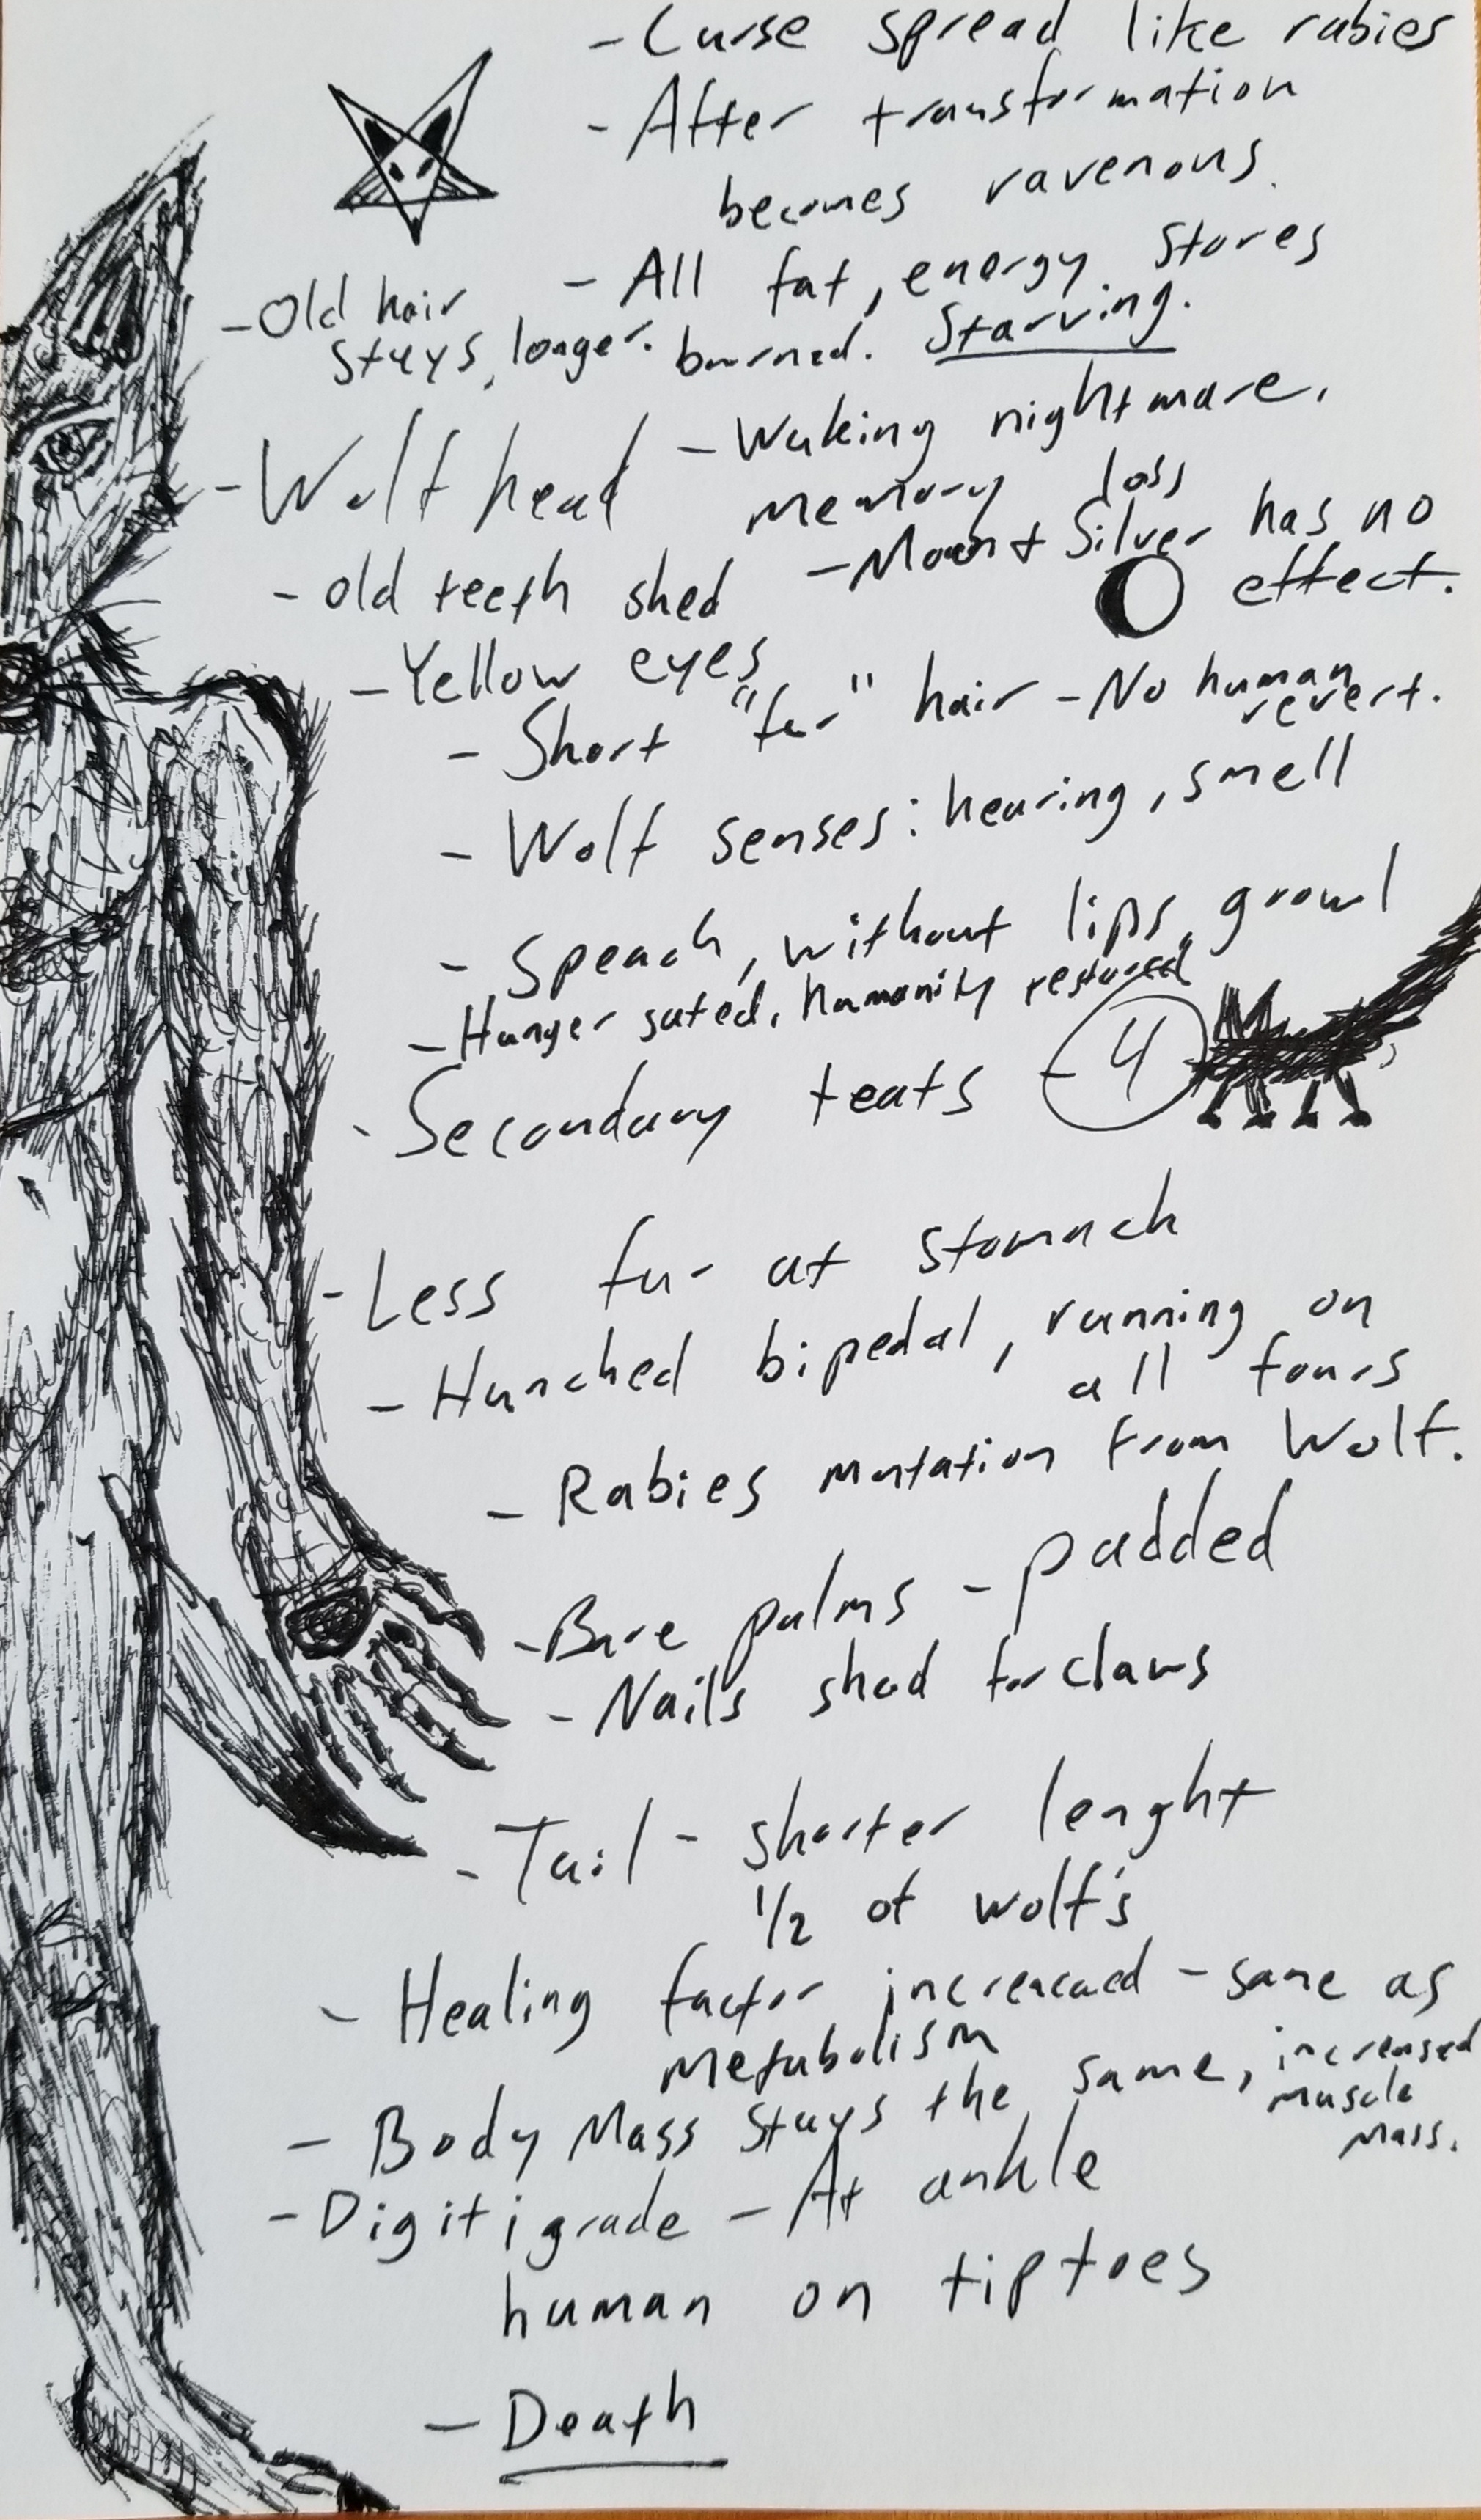 - Curse spread like rabies
- After transformation
becomes ravenous.
- All fat, energy stores
burned. Starving.
- Old hair
stays, longer.
- Waking nightmare,
memory loss
- Wolf head
- Moon + Silver has no
effect.
- old teeth shed
- Yellow eyes
- Short "fur" hair
- No human
revert.
- Wolf senses: hearing, smell
- Speach, without lips, growl
- Hunger sated, humanity restored
- Secondary teats - 4
- Less fur at stomach
- Hunched bipedal, running on
all fours
- Rabies mutation from Wolf.
- Bare palms - padded
- Nails shed for claws
- Tail - shorter lenght
1/2 of wolf's
- Healing factor increacaed - same as
metabolism
- Body Mass stays the same, increased
muscle
mass.
- Digitigrade - At ankle
human on tiptoes
- Death